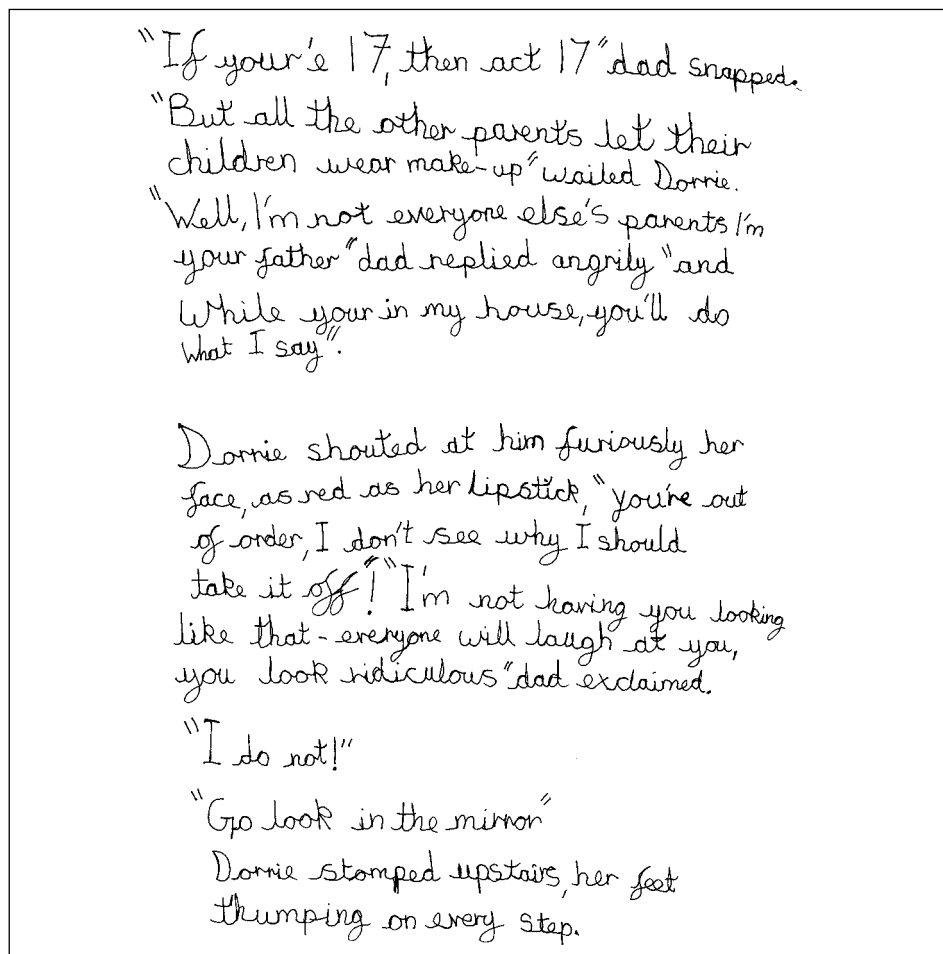 "If your'e 17, then act 17" dad snapped.
"But all the other parents let their
children wear make-up" wailed Dorrie.
"Well, I'm not everyone else's parents I'm
your father" dad replied angrily "and
while your in my house, you'll do
what I say".
Dorrie shouted at him furiously her
face, as red as her lipstick, "you're out
of order, I don't see why I should
take it off!" "I'm not having you looking
like that - everyone will laugh at you,
you look ridiculous" dad exclaimed.
"I do not!"
"Go look in the mirror"
Dorrie stomped upstairs, her feet
thumping on every step.